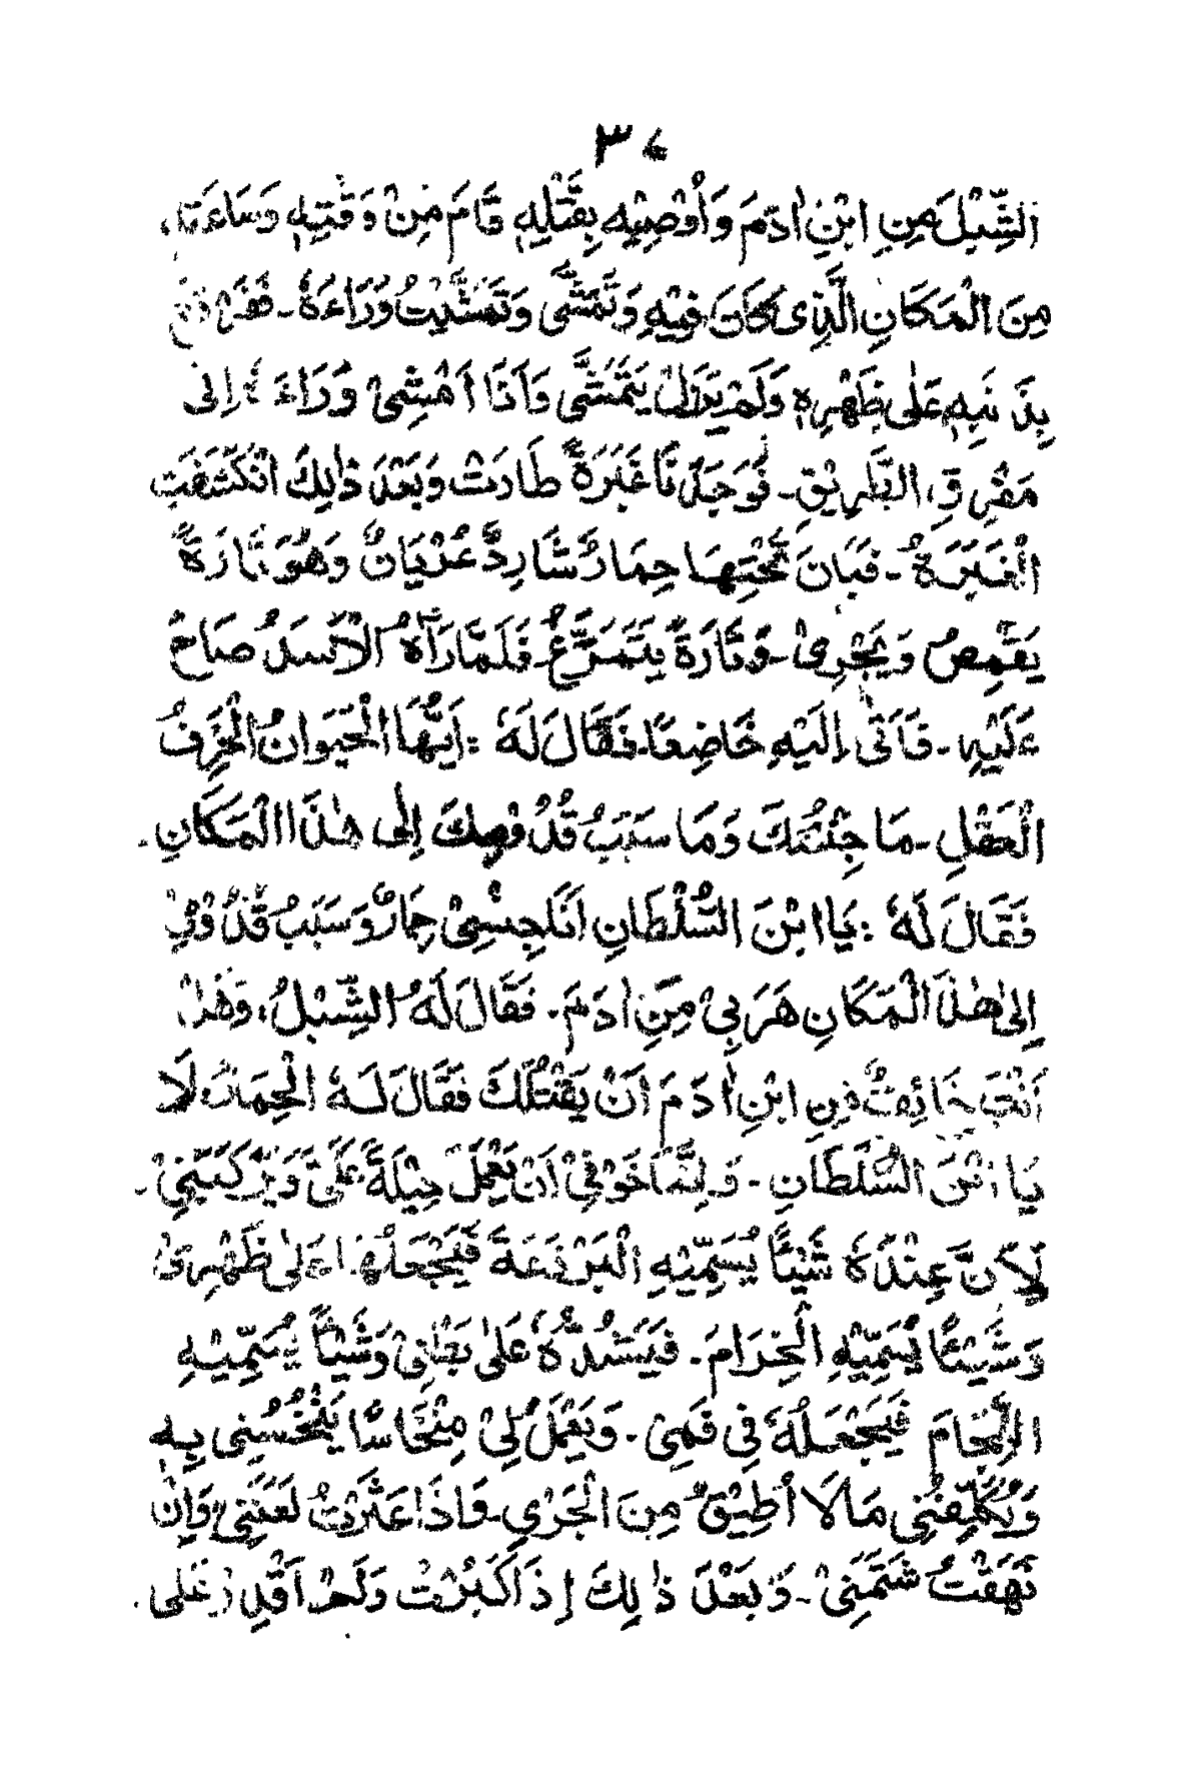 ٣٤
الشِّبْلَ مِنِ ابْنِ اٰدَمَ وَاُوْصِيْهِ بِقَتْلِهٖ قَامَ مِنْ وَقْتِهٖ وَسَاعَتِهٖ
مِنَ الْمَكَانِ الَّذِى كَانَ فِيْهِ وَتَمَشّٰى وَتَمَشَّيْتُ وَرَاءَهٗ - فَفَرْقَعَ
بِذَنَبِهٖ عَلٰى ظَهْرِهٖ وَلَمْ يَزَلْ يَتَمَشّٰى وَاَنَا اَمْشِىْ وَرَاءَهٗ اِلٰى
مَفْرِقِ الطَّرِيْقِ - فَوَجَدْنَا غَبَرَةً طَارَتْ وَبَعْدَ ذٰلِكَ انْكَشَفَتِ
الْغَبَرَةُ - فَبَانَ تَحْتِهَا حِمَارٌ شَارِدٌ عُرْيَانٌ وَهُوَ تَارَةً
يَقْمِصُ وَيَجْرِىْ - وَتَارَةً يَتَمَرَّغُ - فَلَمَّا رَآهُ الْاَسَدُ صَاحَ
عَلَيْهِ - فَاَتٰى اِلَيْهِ خَاضِعًا - فَقَالَ لَهٗ : اَيُّهَا الْحَيَوَانُ الْخَرِفُ
الْعَقْلِ - مَا جِنْسُكَ وَمَا سَبَبُ قُدُوْمِكَ اِلٰى هٰذَا الْمَكَانِ -
فَقَالَ لَهٗ : يَا ابْنَ السُّلْطَانِ اَنَا جِنْسِىْ حِمَارٌ وَسَبَبُ قُدُوْمِىْ
اِلٰى هٰذَ الْمَكَانِ هَرَبِىْ مِنِ ابْنِ اٰدَمَ - فَقَالَ لَهُ الشِّبْلُ، وَهَلْ
اَنْتَ خَائِفٌ مِنِ ابْنِ اٰدَمَ اَنْ يَقْتُلَكَ فَقَالَ لَهُ الْحِمَارُ لَا
يَا ابْنَ السُّلْطَانِ - وَاِنَّمَا خَوْفِىْ اَنْ يَعْمَلَ حِيْلَةً عَلَىَّ وَيَرْكَبَنِىْ -
لِاَنَّ عِنْدَهٗ شَيْئًا يُسَمِّيْهِ الْبَرْذَعَةَ فَيَجْعَلُهَا عَلٰى ظَهْرِىْ
وَشَيْئًا يُسَمِّيْهِ الْحِزَامَ - فَيَشُدُّهٗ عَلٰى بَطْنِىْ وَشَيْئًا يُسَمِّيْهِ
الِّلجَامَ فَيَجْعَلُهٗ فِى فَمِىْ - وَيَعْمَلُ لِىْ مِنْخَاسًا يَنْخُسُنِى بِهٖ
وَيُكَلِّفُنِى مَالَا اُطِيْقُ مِنَ الْجَرْيِ - فَاِذَا عَثَرْتُ لَعَنَنِىْ وَاِنْ
نَهَقْتُ شَتَمَنِىْ - وَبَعْدَ ذٰلِكَ اِذَا كَبُرْتُ وَلَمْ اَقْدِرْ عَلَى